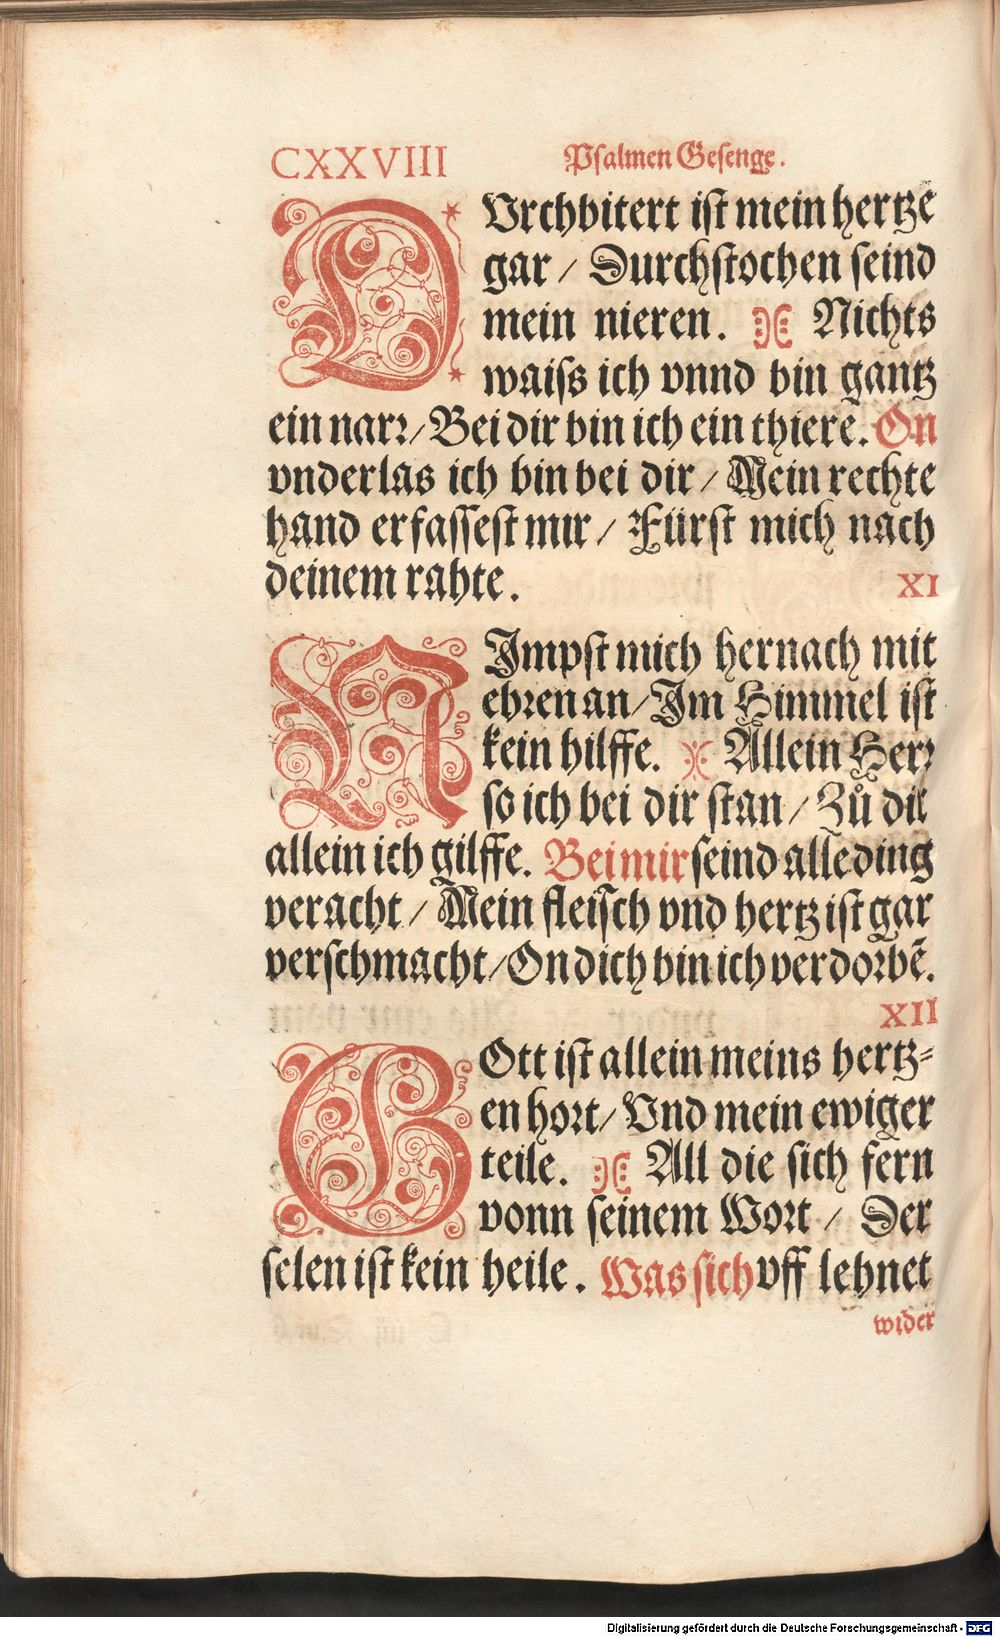 CXXVIII Psalmen Gesenge.
DUrchbitert ist mein hertze
gar / Durchstochen seind
mein nieren. Nichts
waiss ich vnnd bin gantz
ein narr / Bei dir bin ich ein thiere. On
vnderlas ich bin bei dir / Mein rechte
hand erfassest mir / Fürst mich nach
deinem rahte.
XI
NImpst mich hernach mit
ehren an / Im Himmel ist
kein hilffe. Allein Herr
so ich bei dir stan / Zů dir
allein ich gilffe. Bei mir seind alle ding
veracht / Mein fleisch vnd hertz ist gar
verschmacht / On dich bin ich verdorbē.
XII
GOtt ist allein meins hertz-
en hort / Vnd mein ewiger
teile. All die sich fern
vonn seinem Wort / Der
selen ist kein heile. Was sich vff lehnet
wider
Digitalisierung gefördert durch die Deutsche Forschungsgemeinschaft - DFG